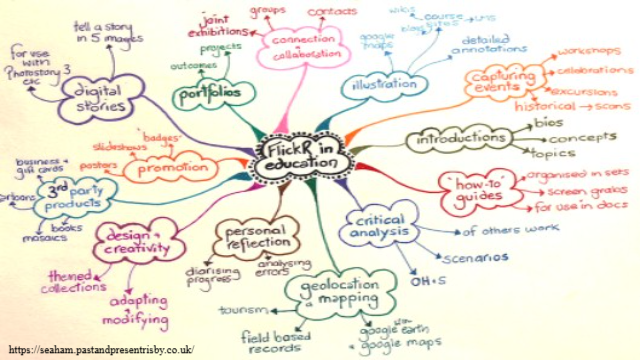 tell a story
in 5 images
for use
with
Photostory 3
etc
digital
stories
joint
exhibitions
groups
contacts
connection +
collaboration
projects
outcomes
portfolios
wikis
course
sites
LMS
blogs
google
maps
detailed
annotations
illustration
capturing
events
workshops
celebrations
excursions
historical → scans
FlickR in
education
introductions
bios
concepts
topics
"badges"
slideshows
posters
promotion
business +
gift cards
3rd party
products
books
mosaics
"how-to"
guides
organised in sets
screen grabs
for use in docs
design +
creativity
themed
collections
adapting
+
modifying
personal
reflection
diarising
progress
analysing
errors
critical
analysis
of others work
scenarios
OH+S
geolocation
+ mapping
tourism
field based
records
with
google earth
+ google maps
https://seaham.pastandpresentrisby.co.uk/